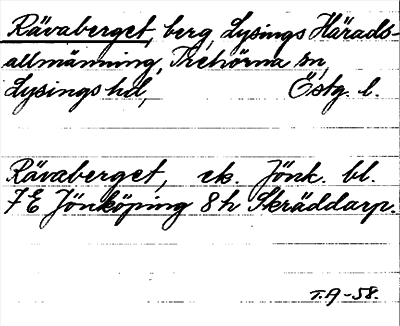 Rävaberget, berg, Lysings Härads-
allmänning, Trehörna sn,
Lysings hd, Östg. l.
Rävaberget, ek. Jönk. bl.
7E Jönköping 8h Skräddarp.
T.A-58.